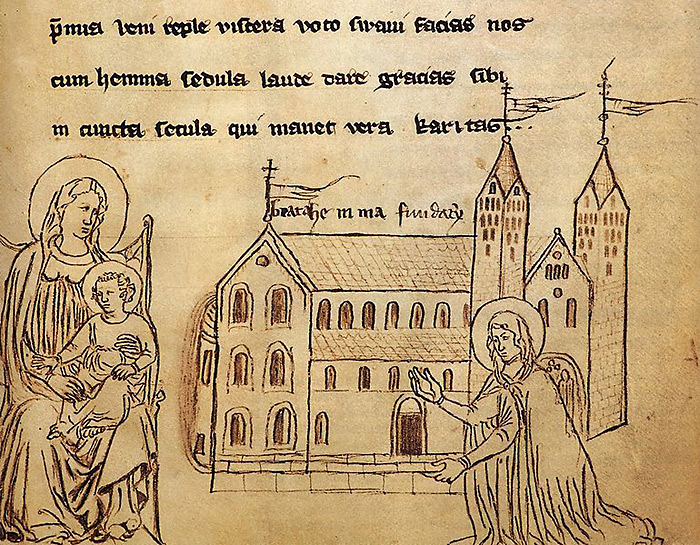 p̄mia veni reple viscera voto suaui facias nos
cum hemma sedula laude dare gracias sibi
in cuncta secula qui manet vera karitas...
beata he m ma